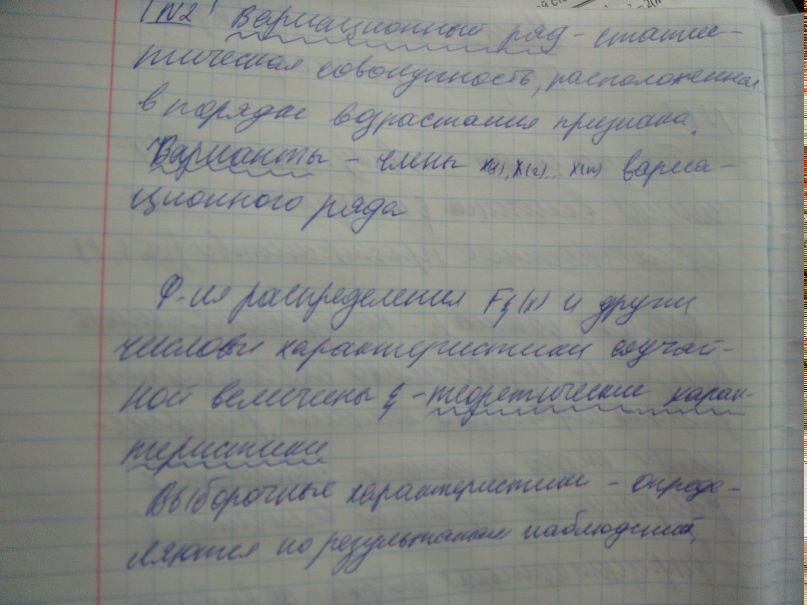 №2 Вариационный ряд - статис-
тическая совокупность, расположенная
в порядке возрастания признака.
Варианты - члены x(1), x(2)... x(n) вариа-
ционного ряда
Ф-ия распределения Fξ(x) и други
числовы характеристики случай-
ной величины ξ - теоретические харак-
теристики
Выборочные характеристики - опреде-
ляются по результатам наблюдений.